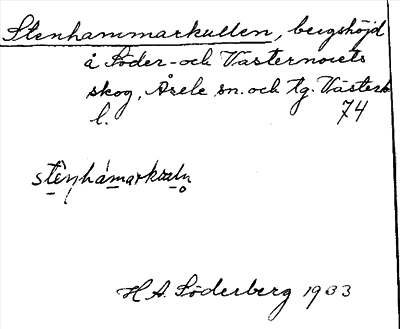 Stenhammarkullen, bergshöjd
å Söder- och Västernorets
skog, Åsele sn. och tg. Västerb
l. 74
H.A. Söderberg 1933